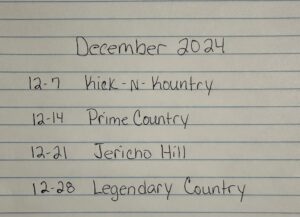 December 2024
12-7 Kick-N-Kountry
12-14 Prime Country
12-21 Jericho Hill
12-28 Legendary Country